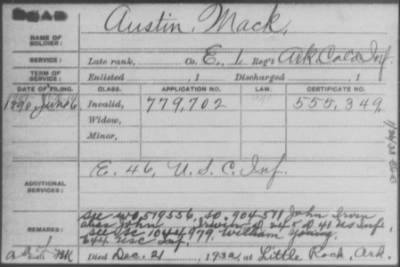 DEAD
NAME OF SOLDIER: Austin, Mack,
SERVICE: Late rank, Co. E, 1 Reg't Ark Col'd Inf
TERM OF SERVICE: Enlisted , 1 Discharged , 1
DATE OF FILING. CLASS. APPLICATION NO. LAW. CERTIFICATE NO.
1890 Invalid, 779,702 555,349
Widow,
Minor,
ADDITIONAL SERVICES: E. 46, U.S.C. Inf.
REMARKS: See WO 579556, SO. 904511 John Irvin
alias John Irwin D 24 & D 41 US Inf,
see SC 1044979 William Young
E 44 USC Inf.
Died Dec. 21, 1932 at Little Rock, Ark.